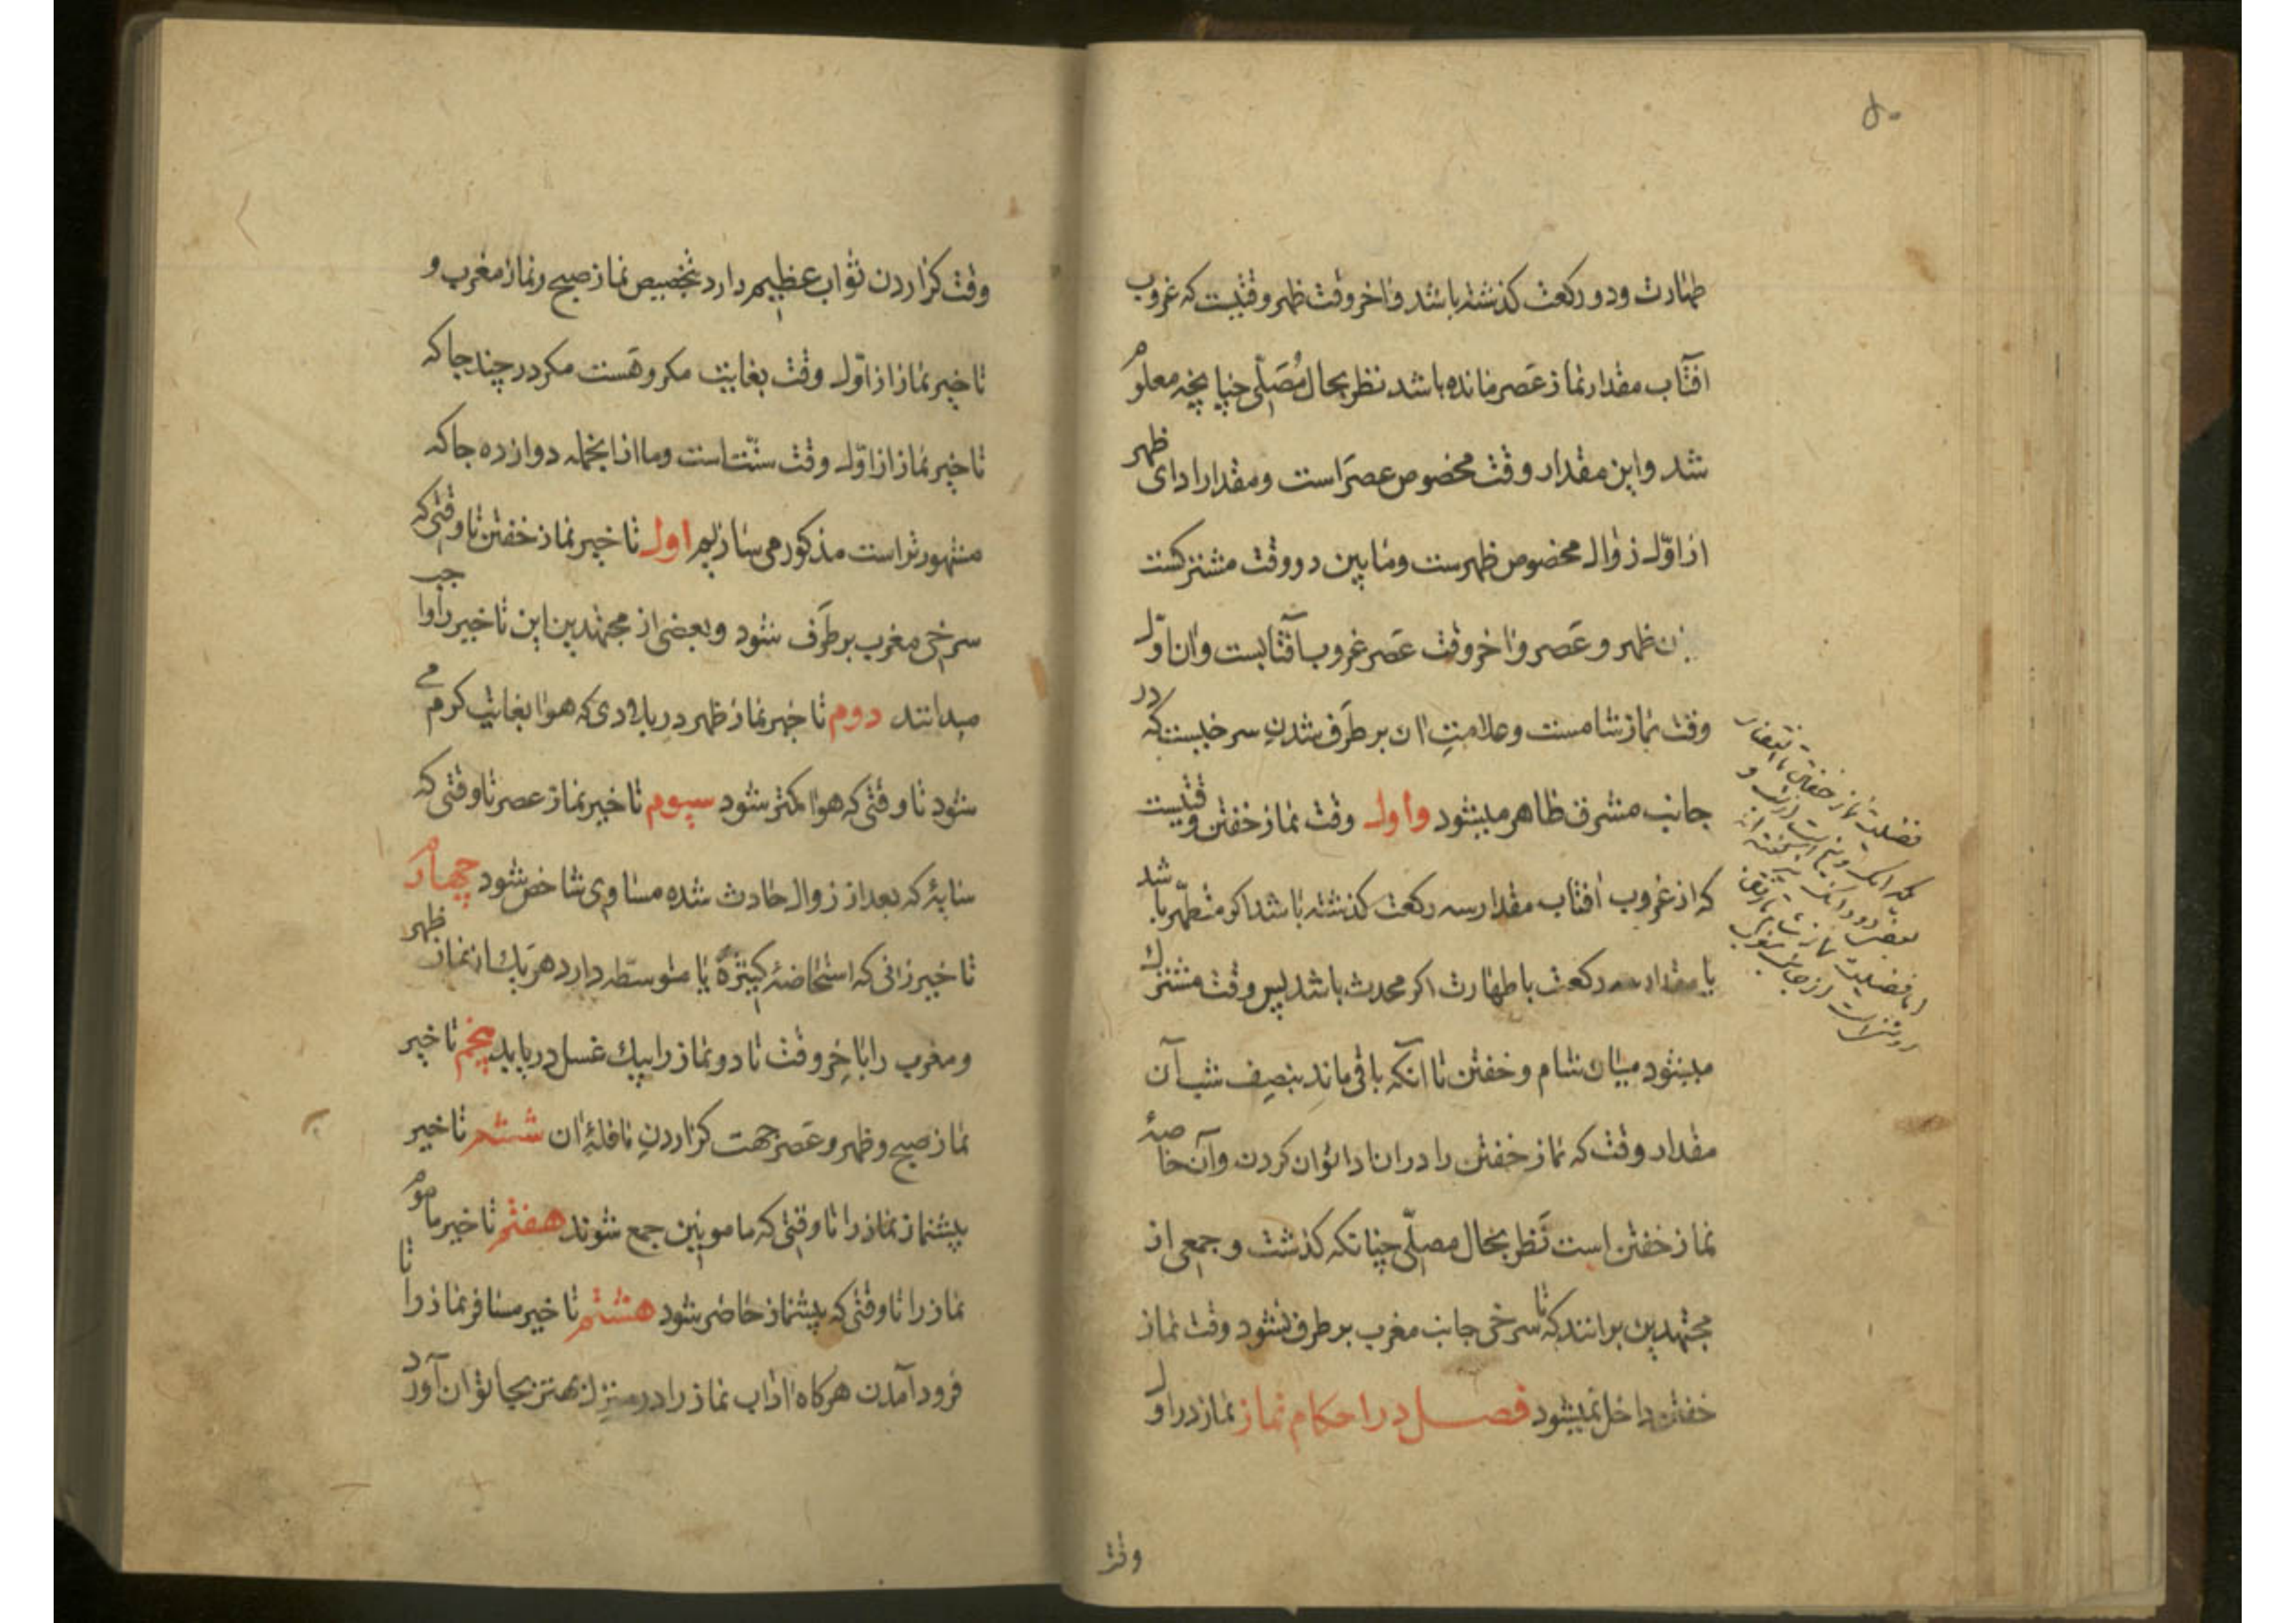 طهارت و دو ركعت كذشته باشد و اخر وقت ظهر وقتيست كه غروب
افتاب مقدار نماز عَصر مانده باشد نظر بحال مُصَلّى چنانچه معلوم
شد و اين مقدار وقت مخصوص عصرَ است و مقدار اداى ظهر
از اوّل زوال مخصوص ظهرست و مابين دو وقت مشتركست
ن ظهر و عَصر و اخر وقت عَصر غروب آفتابست و ان اوّل
وقت نماز شامست و علامتِ ان بر طَرَف شدنِ سرخيست كه در
جانب مشرق ظاهر ميشود و اول وقت نماز خفتن وقتيست
كه از غروب افتاب مقدار سه ركعت كذشته باشد اكر متطهّر باشد
يا مقدار سه ركعت با طهارت اكر محدث باشد پس وقت مشترك
ميشود ميان شام و خفتن تا آنكه باقى ماند بنصِف شب آن
مقدار وقت كه نماز خفتن را در ان ادا توان كردن و آن خاصهٔ
نماز خفتن است نَظر بحال مصلّى چنانكه كذشت و جمعى از
مجتهدين برانند كه تا سرخى جانب مغرب بر طرف نشود وقت نماز
خفتن داخل نميشود فصل در احكام نماز نماز در اول
فضيلت نماز خفتن
اما فضيلت نماز شام
وقت
وقت كزاردن ثواب عظيم دارد بتخصيص نماز صبح و نماز مغرب و
تاخير نماز از اوّل وقت بغايت مكروهَست مكر در چند جا كه
تاخير نماز از اوّل وقت سنّت است و ما از انجمله دوازده جا كه
مشهورتر است مذكور مى سازيم اول تاخير نماز خفتن تا وقتى كه
سرخى مغرب بر طَرَف شود و بعضى از مجتهدين اين تاخير را واجب
ميدانند دوم تاخير نماز ظهر در بلادى كه هوا بغايت كرم مى
شود تا وقتى كه هوا كمتر شود سيوم تا خير نماز عصر تا وقتى كه
سايهٔ كه بعد از زوال حادث شده مساوى شاخص شود چهارم
تاخير زانى كه استحاضهٔ كثيرة يا متوسّطه دارد هر يك از نماز ظهر
و مغرب را باخِر وقت تا دو نماز را بيك غسل دريابد پنجم تا خير
نماز صبح و ظهر و عَصر جهت كزاردنِ نافلهٔ ان ششم تا خير
پيشنماز نماز را تا وقتى كه مامومين جمع شوند هفتم تا خير ماموم
نماز را تا وقتى كه پيشنماز حاضر شود هشتم تا خير مسافر نماز را تا
فرود آمدن هركاه اداب نماز را در منزل بهتر بجا توان آورد